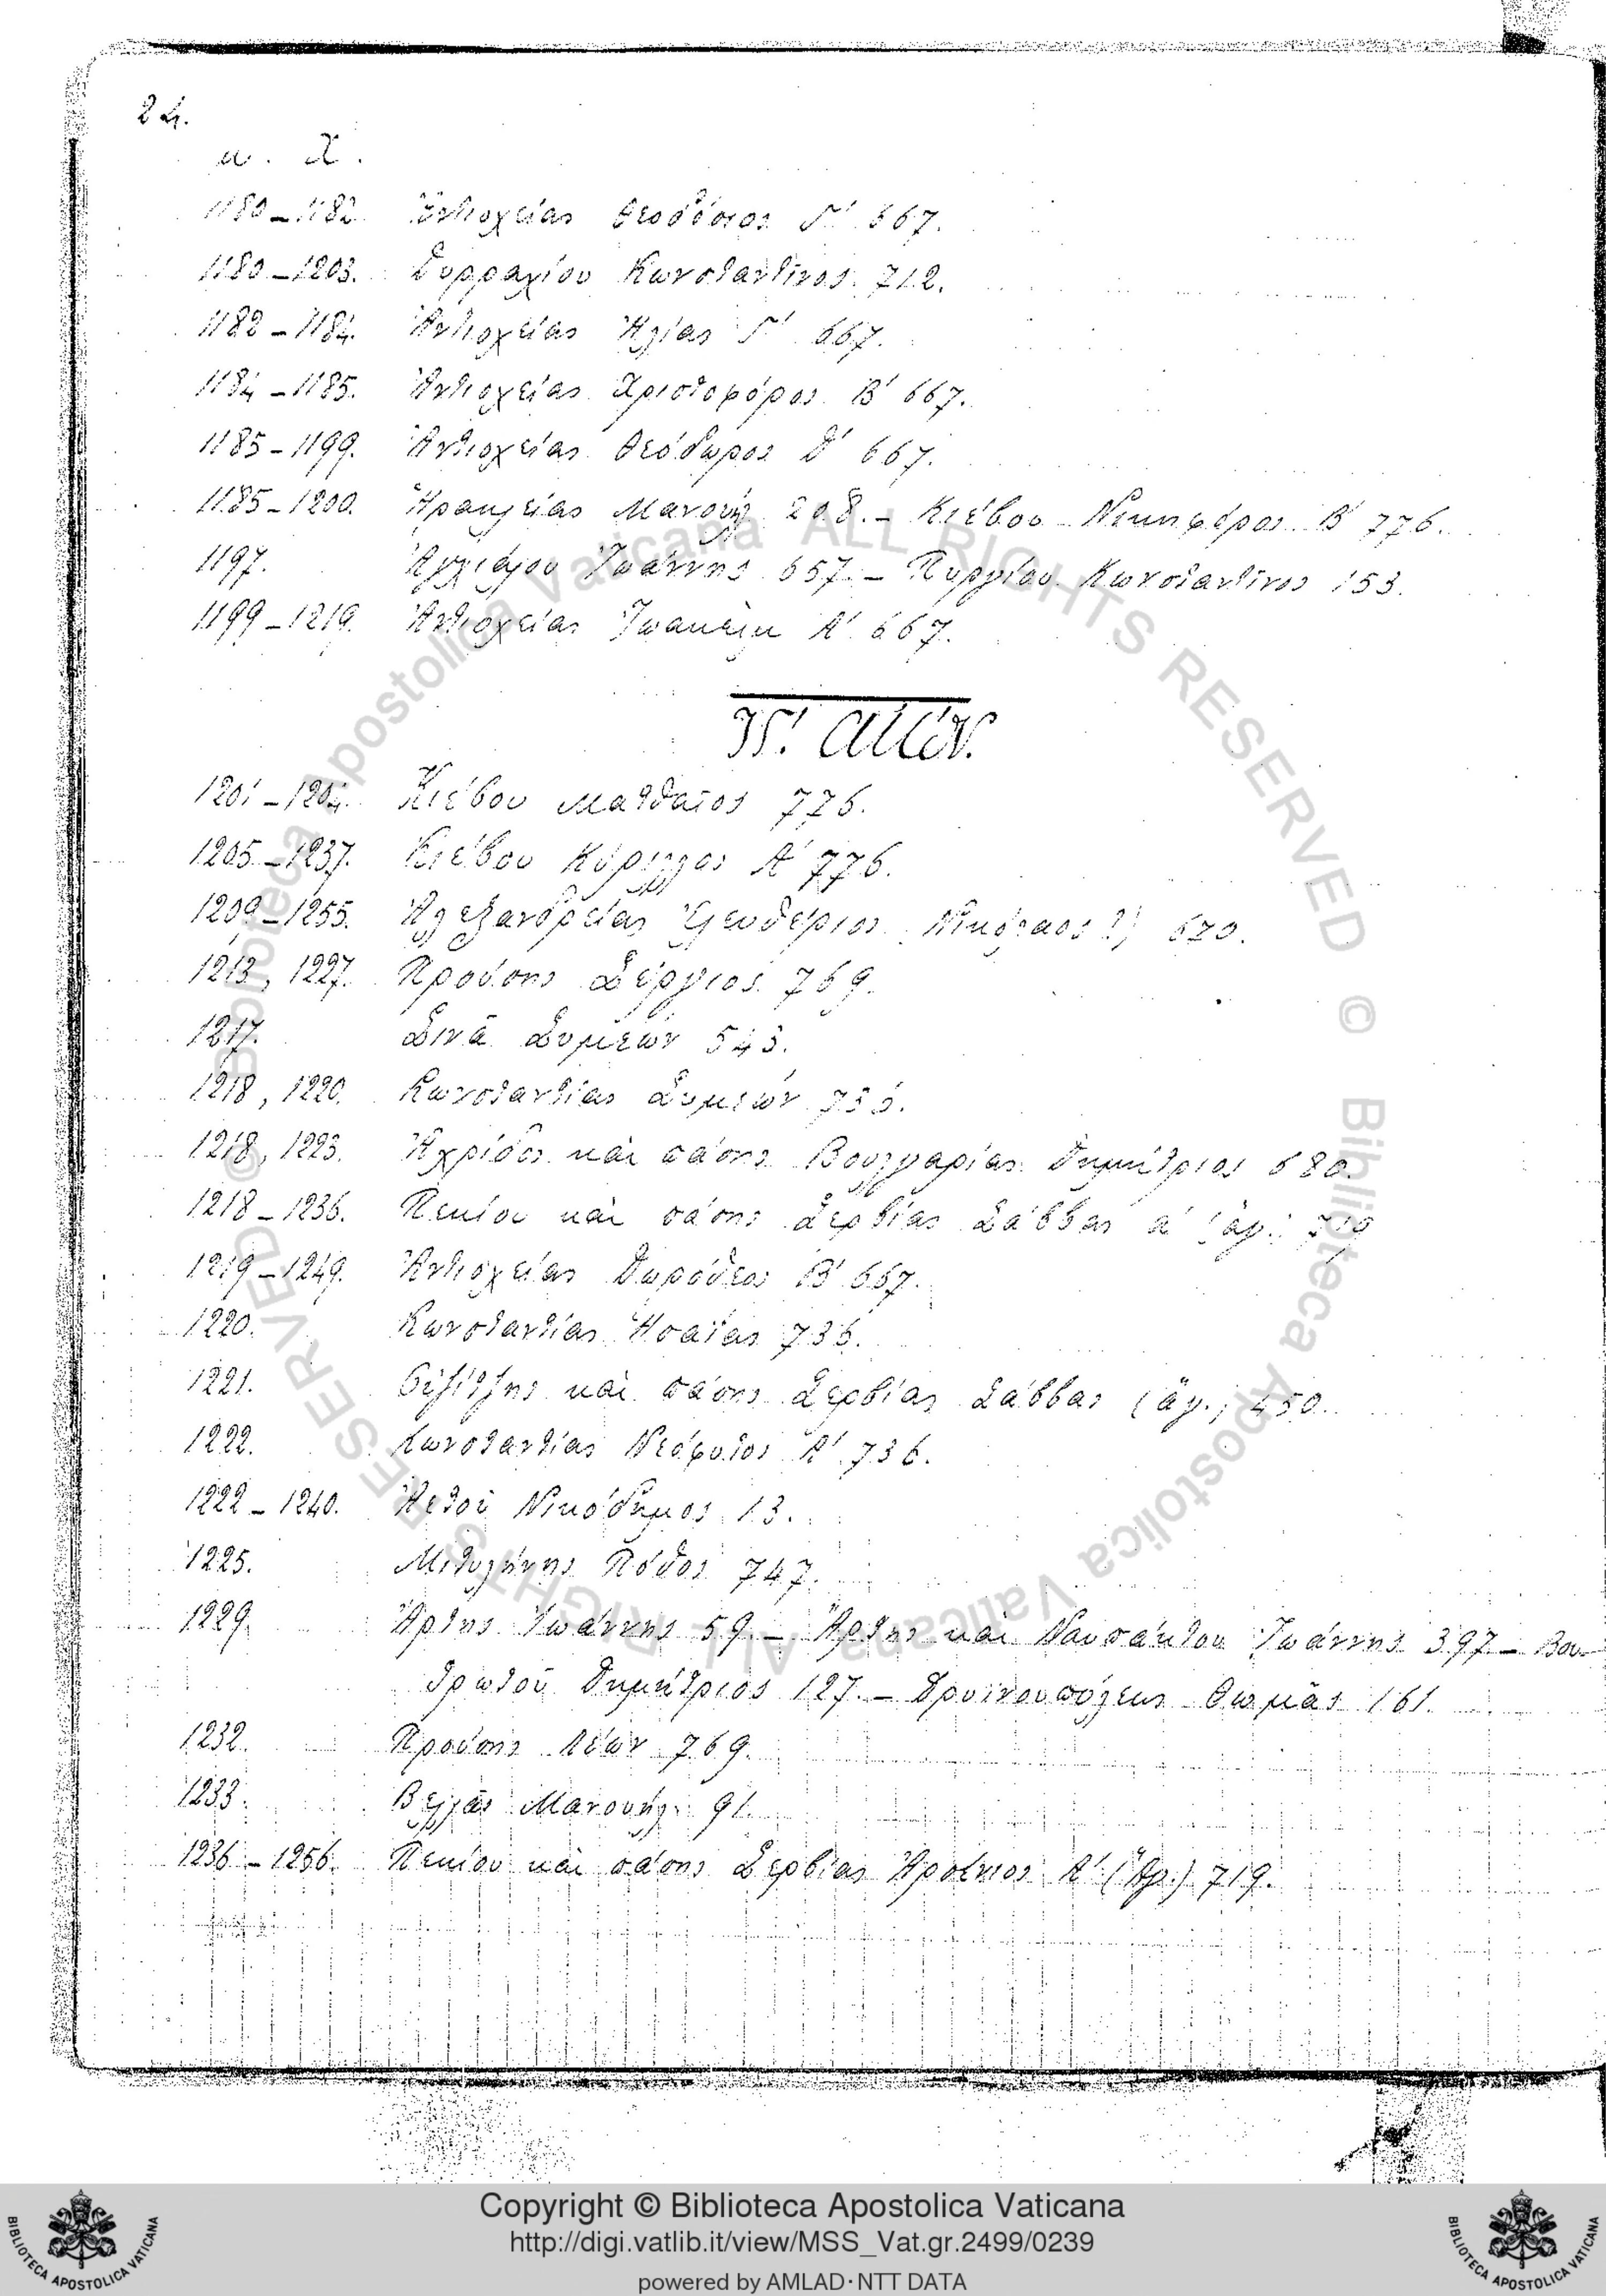 24.
μ. Χ.
1180–1182. Ἀντιοχείας Θεοδόσιος Γ' 667.
1180–1203. Δυρραχίου Κωνσταντῖνος 712.
1182–1184. Ἀντιοχείας Ἠλίας Γ' 667.
1184–1185. Ἀντιοχείας Χριστοφόρος Β' 667.
1185–1199. Ἀντιοχείας Θεόδωρος Δ' 667.
1185–1200. Ἡρακλείας Μανουήλ 208. – Κιέβου Νικηφόρος Β' 776.
1197. Ἀγχιάλου Ἰωάννης 657. – Πυργίου Κωνσταντῖνος 153.
1199–1219. Ἀντιοχείας Ἰωακείμ Α' 667.
ΙΓ'. αἰών.
1201–1204. Κιέβου Ματθαῖος 776.
1205–1237. Κιέβου Κύριλλος Α' 776.
1209–1255. Ἀλεξανδρείας Ἐλευθέριος Νικόλαος
1213, 1227. Προύσης Σέργιος 769.
1217. Σινᾶ Συμεών 543.
1218, 1220. Κωνσταντίας Συμεών
1218, 1223. Ἀχρίδος καὶ πάσης Βουλγαρίας Δημήτριος 680.
1218–1236. Πεκίου καὶ πάσης Σερβίας Σάββας α' (ἅγ.) 719
1219–1249. Ἀντιοχείας Δωρόθεος Β' 667.
1220. Κωνσταντίας Ἡσαΐας 736.
1221. καὶ πάσης Σερβίας Σάββας (ἅγ.) 450.
1222. Κωνσταντίας Νεόφυτος Α' 736.
1222–1240. Ἀετοῦ Νικόδημος 13.
1225. Μιτυλήνης Πόθος 747.
1229. Ἄρτης Ἰωάννης 59. – Ἄρτης καὶ Ναυπάκτου Ἰωάννης 397 – Βου-
θρωτοῦ Δημήτριος 127. – Δρυϊνουπόλεως Θωμᾶς 161.
1232. Προύσης Λέων 769.
1233. Βελλᾶς Μανουήλ 91.
1236–1256. Πεκίου καὶ πάσης Σερβίας Ἀρσένιος Α' (Ἅγ.) 719.
Biblioteca Apostolica Vaticana ALL RIGHTS RESERVED © Biblioteca Apostolica Vaticana ALL RIGHTS RESERVED ©
Copyright © Biblioteca Apostolica Vaticana
http://digi.vatlib.it/view/MSS_Vat.gr.2499/0239
powered by AMLAD·NTT DATA
BIBLIOTECA APOSTOLICA VATICANA
BIBLIOTECA APOSTOLICA VATICANA